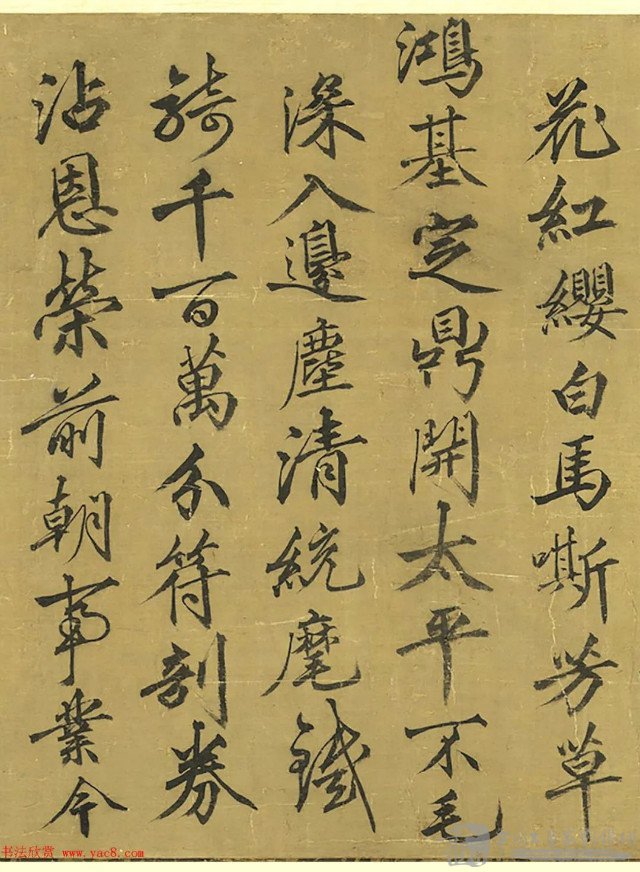 花紅纓白馬嘶芳草
鴻基定鼎開太平不毛
深入邊塵清統麾鐵
騎千百萬分符剖券
沾恩榮前朝事業今
书法欣赏 www.yac8.com